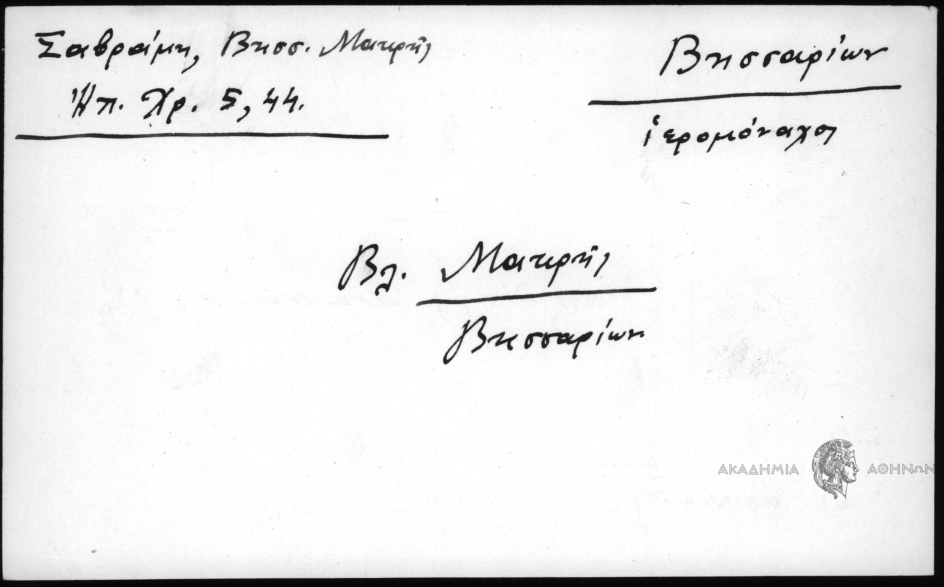 Σαβράμη, Βησσ. Μακρῆς
Ἠπ. Χρ. 5, 44.
Βησσαρίων
ἱερομόναχος
Βλ. Μακρῆς
Βησσαρίων
ΑΚΑΔΗΜΙΑ ΑΘΗΝΩΝ